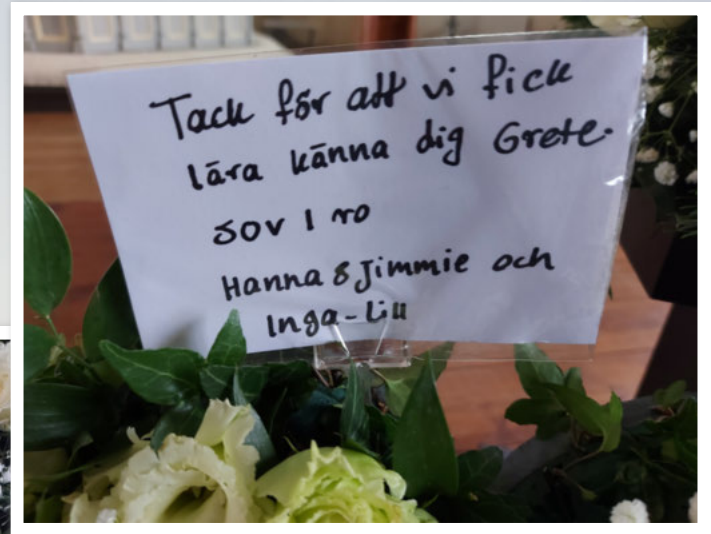 Tack för att vi fick
lära känna dig Grete.
sov i ro
Hanna & Jimmie och
Inga-Lill